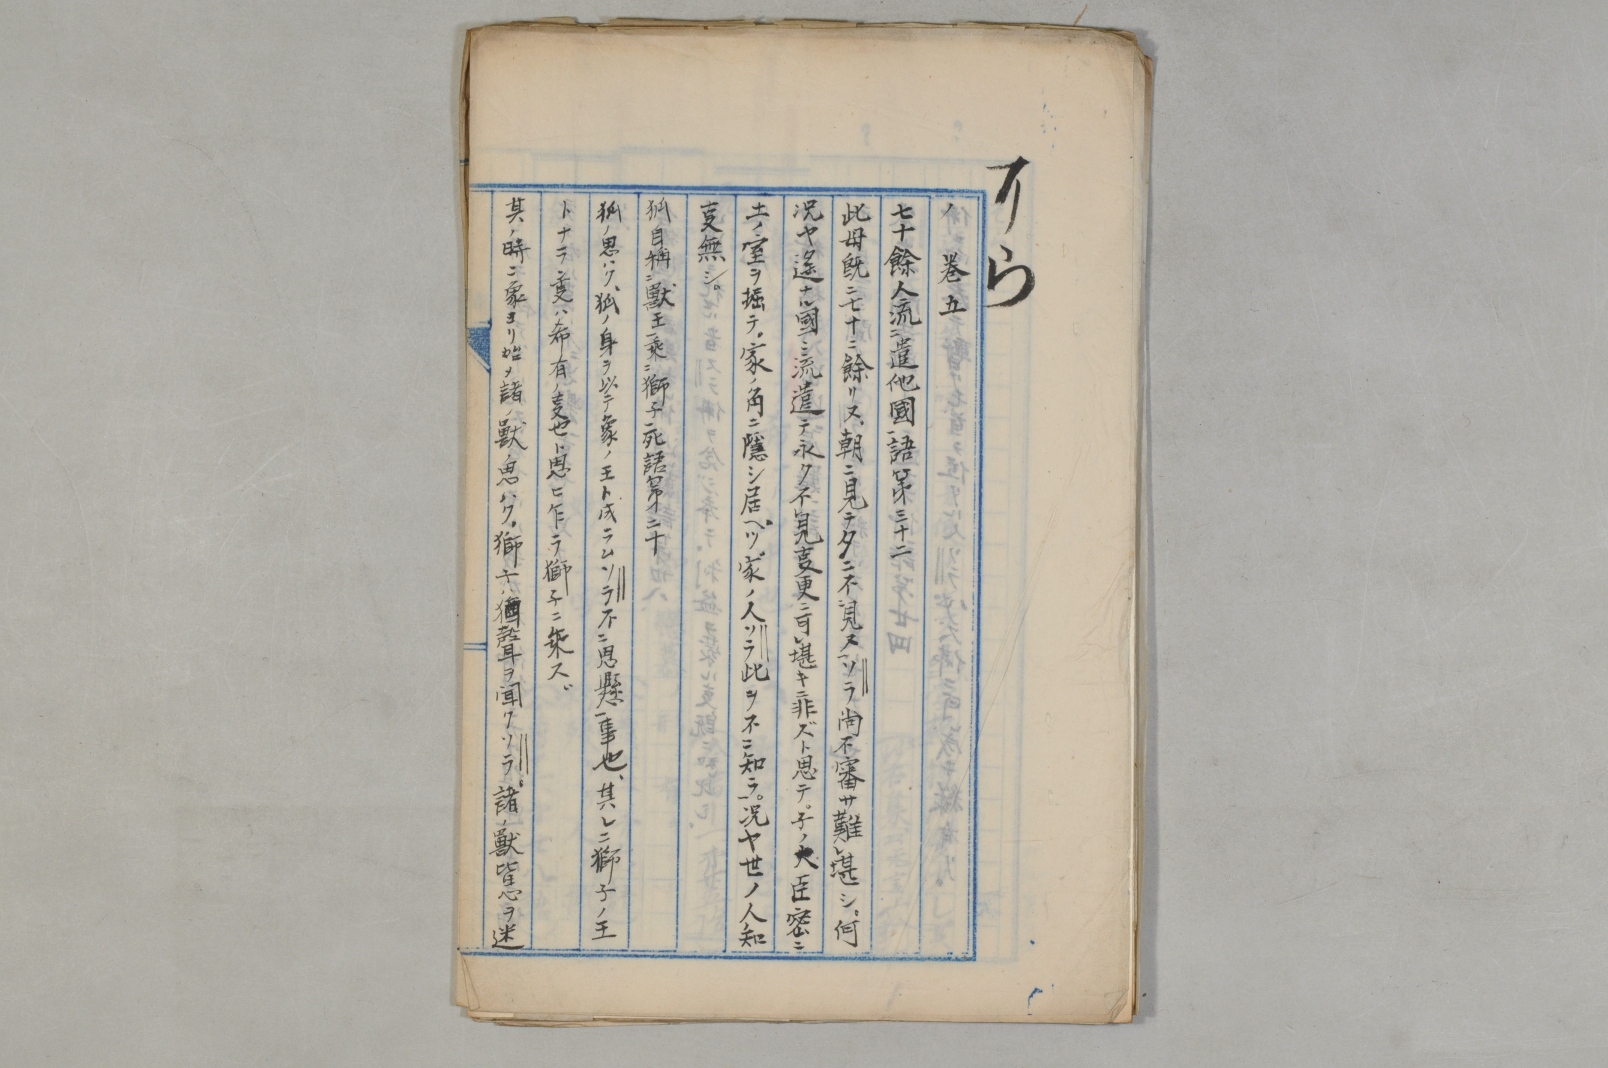 すら
巻五
七十餘人流ニ遣他國一語第三十二
此母既ニ七十ニ餘リヌ、朝ニ見テ夕ニ不見ヌソラ尚不審サ難レ堪シ。何
況ヤ遙ナル國ニ流遣テ永ク不見事更ニ可レ堪キニ非ズト思テ。子ノ大臣密ニ
土ノ室ヲ掘テ。家ノ角ニ隱シ居ヘツ。家ノ人ソラ此ヲ不ニ知ラ一。況ヤ世ノ人知
事無シ。
狐自稱ニ獸王一乘ニ獅子一死語第二十
狐ノ思ハク、狐ノ身ヲ以テ象ノ王ト成ラムソラ不ニ思懸一事也、其レニ獅子ノ王
トナラン事ハ希有ノ事也ト思ヒ乍ラ獅子ニ乘ヌ。
其ノ時ニ象ヨリ始メ諸ノ獸ノ思ハク。獅子ハ猶聲ヲ聞クソラ。諸ノ獸皆心ヲ迷